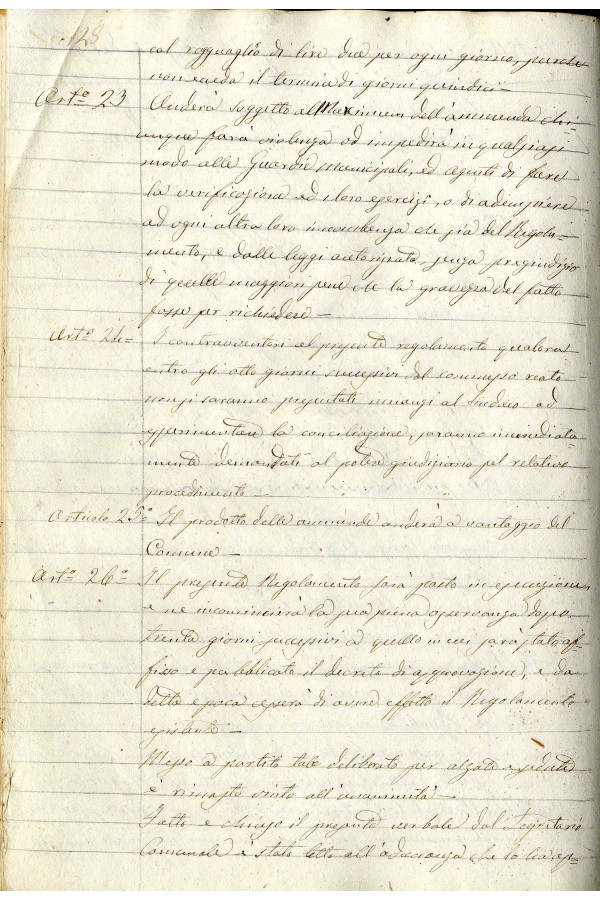 128
col ragguaglio di lire due per ogni giorno, purche
non ecceda il termine di giorni quindici –
Artº 23 Anderà soggetto al Maximum dell'ammenda chi-
unque farà violenza od impedirà in qualsiasi
modo alle Guardie Municipali, ed agenti di fare
la verificazione ed i loro esercizj, o di adempiere
ad ogni altra loro incombenza che sia del Regola-
mento, e dalle leggi autorizzata, senza pregiudizio
di quelle maggiori pene che la gravezza del fatto
fosse per richiedere –
Artº 24= I contravventori al presente regolamento qualora
entro gli otto giorni successivi dal commesso reato
non si saranno presentati innanzi al Sindaco ad
esperimentare la conciliazione, saranno immediata-
mente demandati al potere giudiziario pel relativo
procedimento –
Articolo 25º Il prodotto delle ammende anderà a vantaggio del
Comune –
Artº 26º Il presente Regolamento sarà posto in esecuzione
e ne incomincierà la sua piena osservanza dopo
trenta giorni successivi a quello in cui sarà stato af-
fisso e pubblicato il decreto di approvazione, e da
detta epoca cesserà di avere effetto il Regolamento
esistente –
Messo a partito tale deliberato per alzata e seduta
è rimasto vinto all'unanimità –
Fatto e chiuso il presente verbale dal Segretario
Comunale è stato letto all'adunanza che lo ha ap-